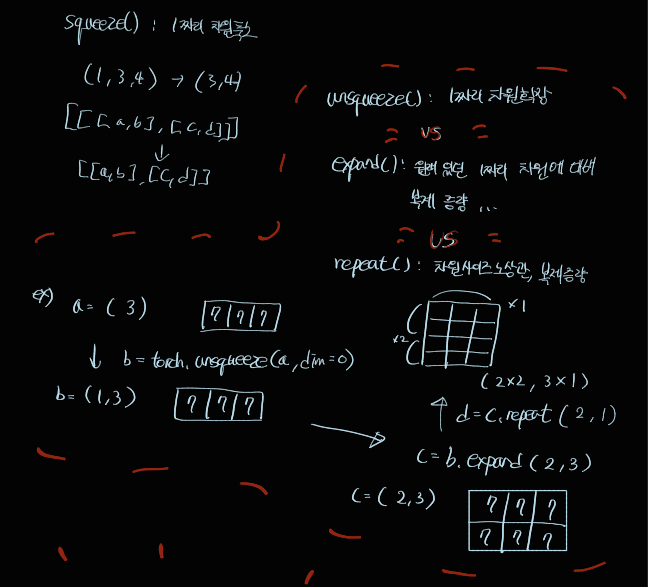 squeeze() : 1짜리 차원축소
(1,3,4) → (3,4)
[[[a,b],[c,d]]]
↓
[[a,b],[c,d]]
unsqueeze() : 1짜리 차원확장
VS
expand() : 원래 있던 1짜리 차원에 대해
복제 증량 ...
VS
repeat() : 차원사이즈 노상관, 복제증량
ex) a = (3)
7 7 7
↓ b = torch.unsqueeze(a, dim=0)
b = (1,3)
7 7 7
x1
x2
(2x2, 3x1)
↑ d = c.repeat(2,1)
→ c = b.expand(2,3)
c = (2,3)
7 7 7
7 7 7